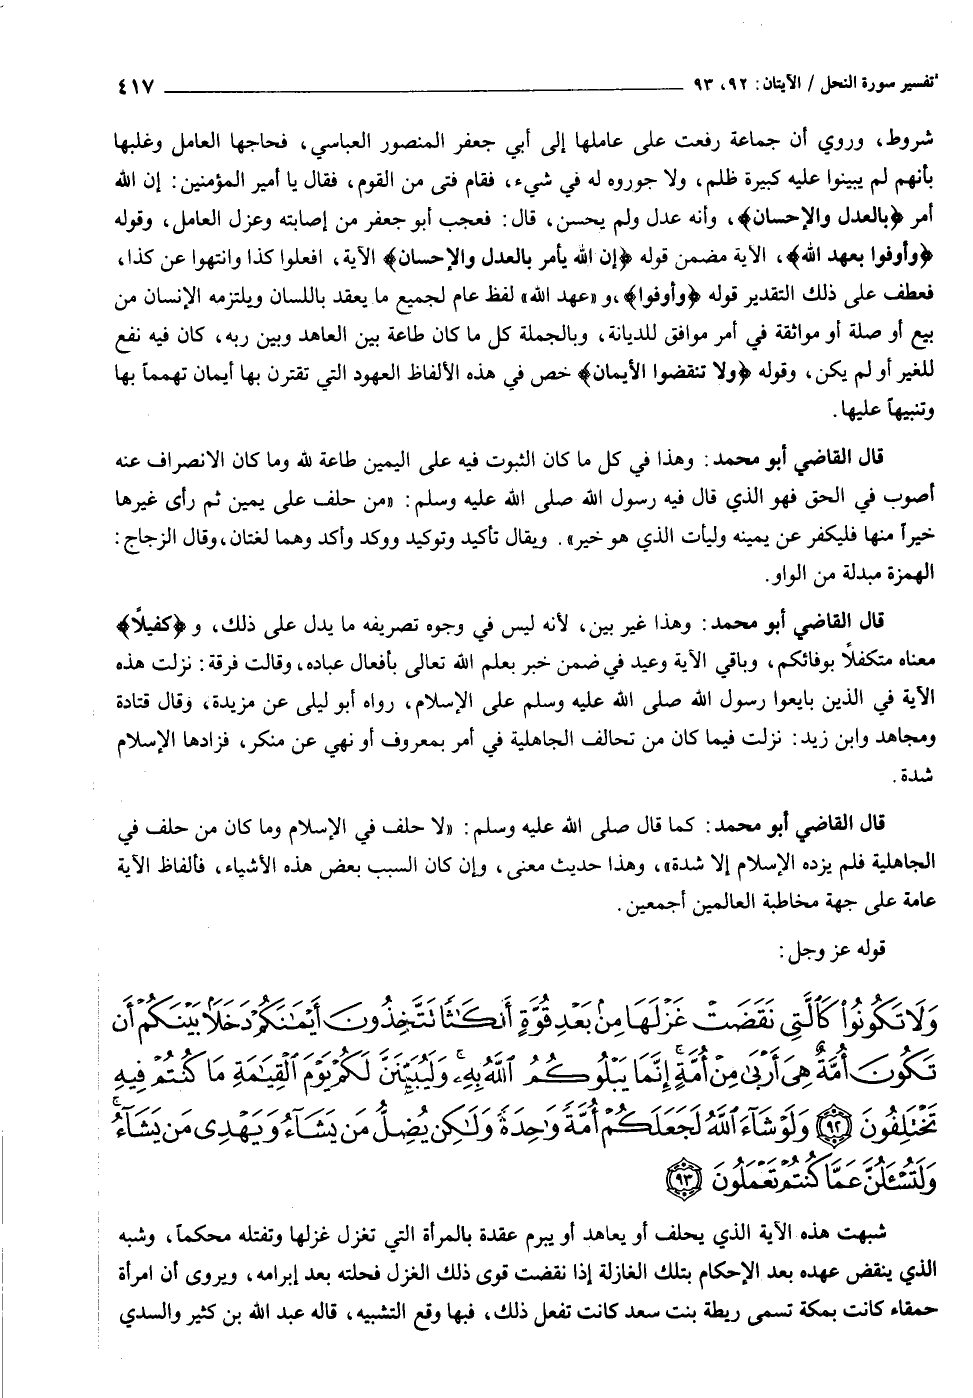 تفسير سورة النحل / الآيتان: ٩٢، ٩٣ ٤١٧
شروط، وروي أن جماعة رفعت على عاملها إلى أبي جعفر المنصور العباسي، فحاجها العامل وغلبها
بأنهم لم يبينوا عليه كبيرة ظلم، ولا جوروه له في شيء، فقام فتى من القوم، فقال يا أمير المؤمنين: إن الله
أمر ﴿بالعدل والإحسان﴾، وأنه عدل ولم يحسن، قال: فعجب أبو جعفر من إصابته وعزل العامل، وقوله
﴿وأوفوا بعهد الله﴾، الآية مضمن قوله ﴿إن الله يأمر بالعدل والإحسان﴾ الآية، افعلوا كذا وانتهوا عن كذا،
فعطف على ذلك التقدير قوله ﴿وأوفوا﴾،و «عهد الله» لفظ عام لجميع ما يعقد باللسان ويلتزمه الإنسان من
بيع أو صلة أو مواثقة في أمر موافق للديانة، وبالجملة كل ما كان طاعة بين العاهد وبين ربه، كان فيه نفع
للغير أو لم يكن، وقوله ﴿ولا تنقضوا الأيمان﴾ خص في هذه الألفاظ العهود التي تقترن بها أيمان تهمماً بها
وتنبيهاً عليها.
قال القاضي أبو محمد: وهذا في كل ما كان الثبوت فيه على اليمين طاعة لله وما كان الانصراف عنه
أصوب في الحق فهو الذي قال فيه رسول الله صلى الله عليه وسلم: «من حلف على يمين ثم رأى غيرها
خيراً منها فليكفر عن يمينه وليأت الذي هو خير». ويقال تأكيد وتوكيد ووكد وأكد وهما لغتان،وقال الزجاج:
الهمزة مبدلة من الواو.
قال القاضي أبو محمد: وهذا غير بين، لأنه ليس في وجوه تصريفه ما يدل على ذلك، و ﴿كفيلاً﴾
معناه متكفلاً بوفائكم، وباقي الآية وعيد في ضمن خبر بعلم الله تعالى بأفعال عباده، وقالت فرقة: نزلت هذه
الآية في الذين بايعوا رسول الله صلى الله عليه وسلم على الإسلام، رواه أبو ليلى عن مزيدة، وقال قتادة
ومجاهد وابن زيد: نزلت فيما كان من تحالف الجاهلية في أمر بمعروف أو نهي عن منكر، فزادها الإسلام
شدة.
قال القاضي أبو محمد: كما قال صلى الله عليه وسلم: «لا حلف في الإسلام وما كان من حلف في
الجاهلية فلم يزده الإسلام إلا شدة»، وهذا حديث معنى، وإن كان السبب بعض هذه الأشياء، فألفاظ الآية
عامة على جهة مخاطبة العالمين أجمعين.
قوله عز وجل:
وَلَا تَكُونُوا كَالَّتِي نَقَضَتْ غَزْلَهَا مِنْ بَعْدِ قُوَّةٍ أَنكَاثًا تَتَّخِذُونَ أَيْمَانَكُمْ دَخَلًا بَيْنَكُمْ أَن
تَكُونَ أُمَّةٌ هِيَ أَرْبَى مِنْ أُمَّةٍ إِنَّمَا يَبْلُوكُمُ اللَّهُ بِهِ وَلَيُبَيِّنَنَّ لَكُمْ يَوْمَ الْقِيَامَةِ مَا كُنتُمْ فِيهِ
تَخْتَلِفُونَ ﴿٩٢﴾ وَلَوْ شَاءَ اللَّهُ لَجَعَلَكُمْ أُمَّةً وَاحِدَةً وَلَكِن يُضِلُّ مَن يَشَاءُ وَيَهْدِي مَن يَشَاءُ
وَلَتُسْأَلُنَّ عَمَّا كُنتُمْ تَعْمَلُونَ ﴿٩٣﴾
شبهت هذه الآية الذي يحلف أو يعاهد أو يبرم عقدة بالمرأة التي تغزل غزلها وتفتله محكماً، وشبه
الذي ينقض عهده بعد الإحكام بتلك الغازلة إذا نقضت قوى ذلك الغزل فحلته بعد إبرامه، ويروى أن امرأة
حمقاء كانت بمكة تسمى ريطة بنت سعد كانت تفعل ذلك، فبها وقع التشبيه، قاله عبد الله بن كثير والسدي